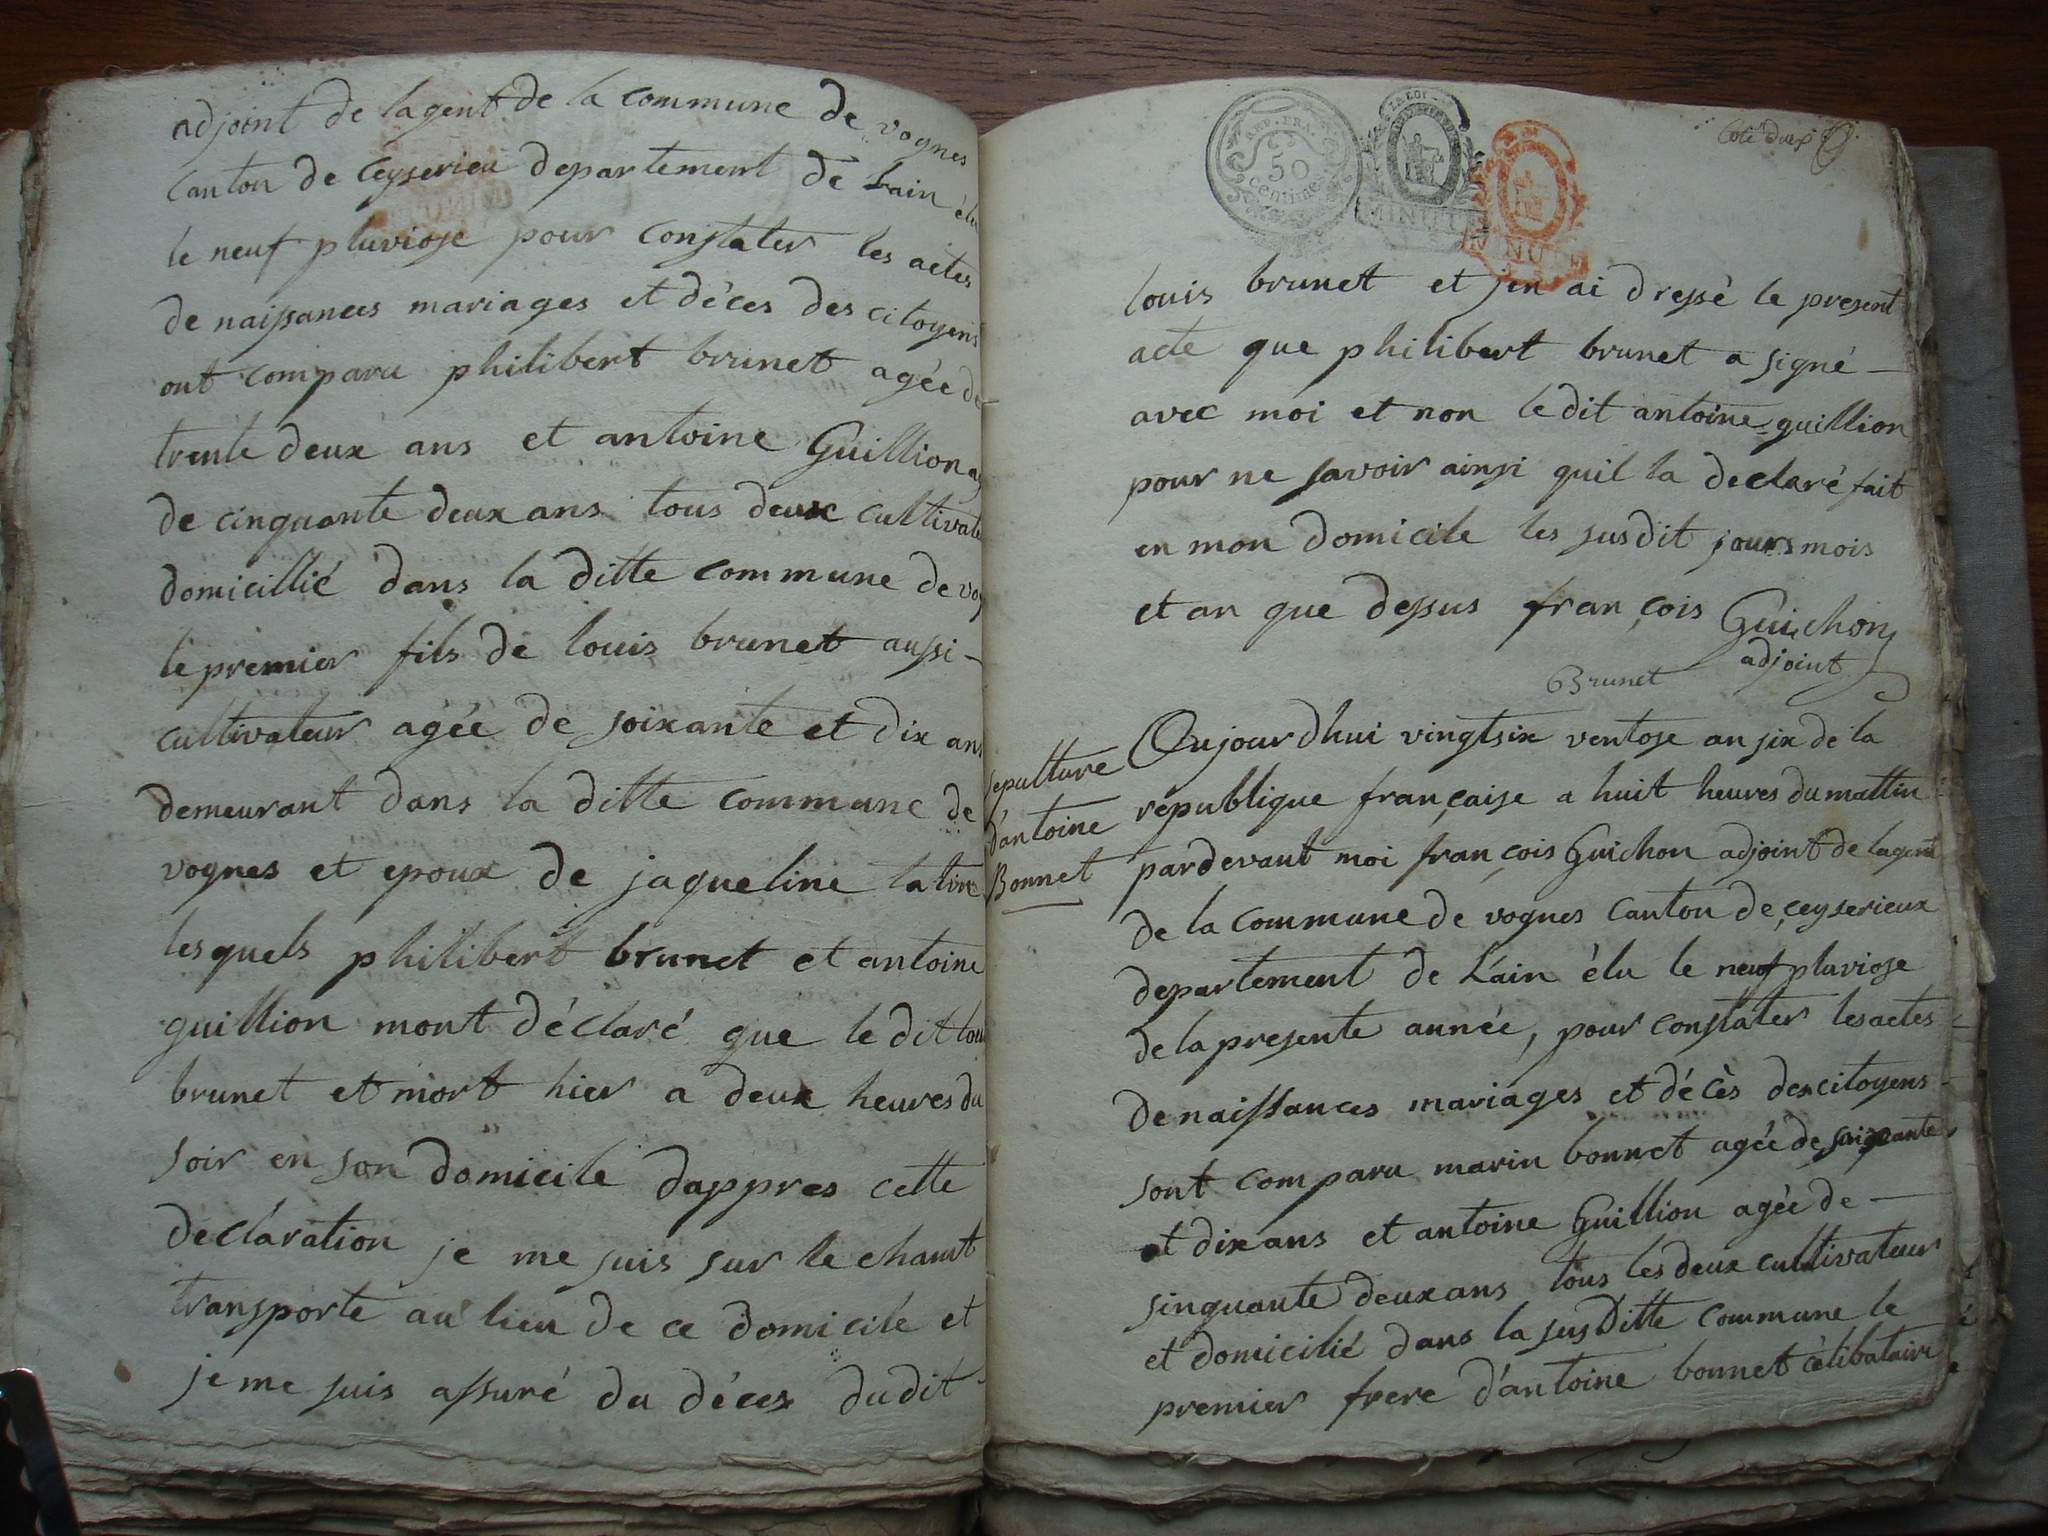 adjoint de lagent de la commune de vognes
canton de ceyserieu departement de Lain élu
le neuf pluviose pour constater les actes
de naissances mariages et déces des citoyens
ont comparu philibert brunet agée de
trente deux ans et antoine Guillion ag
de cinquante deux ans tous deux cultivate
domicillié dans la ditte commune de vog
le premier fils de louis brunet aussi -
cultivateur agée de soixante et dix ans
demeurant dans la ditte commune de
vognes et epoux de jaqueline
lesquels philibert brunet et antoine
guillion mont déclaré que le dit lou
brunet et mort hier a deux heures du
soir en son domicile dappres cette
declaration je me suis sur le chamt
transporte au lieu de ce domicile et
je me suis assuré du déces dudit
coté deux
REP. FRA.
50
centimes
LA LOI
MINUTE
MINUTE
louis brunet et jen ai dressé le present
acte que philibert brunet a signé —
avec moi et non le dit antoine guillion
pour ne savoir ainsi quil la declaré fait
en mon domicile les susdit jours mois
et an que dessus françois Guichon
adjoint
Brunet
sepulture
d'antoine
Bonnet
Aujourdhui vingtsix ventose an six de la
république française a huit heures du mattin
pardevant moi françois Guichon adjoint de lagent
de la commune de vognes canton de ceyserieux
departement de L'ain élu le neuf pluviose
de la presente année, pour constater les actes
de naissances mariages et décès des citoyens
sont comparu marin bonnet agée de soixante
et dix ans et antoine Guillion agée de —
sinquante deux ans tous les deux cultivateur
et domicilié dans la susditte commune le
premier frere d'antoine bonnet célibataire